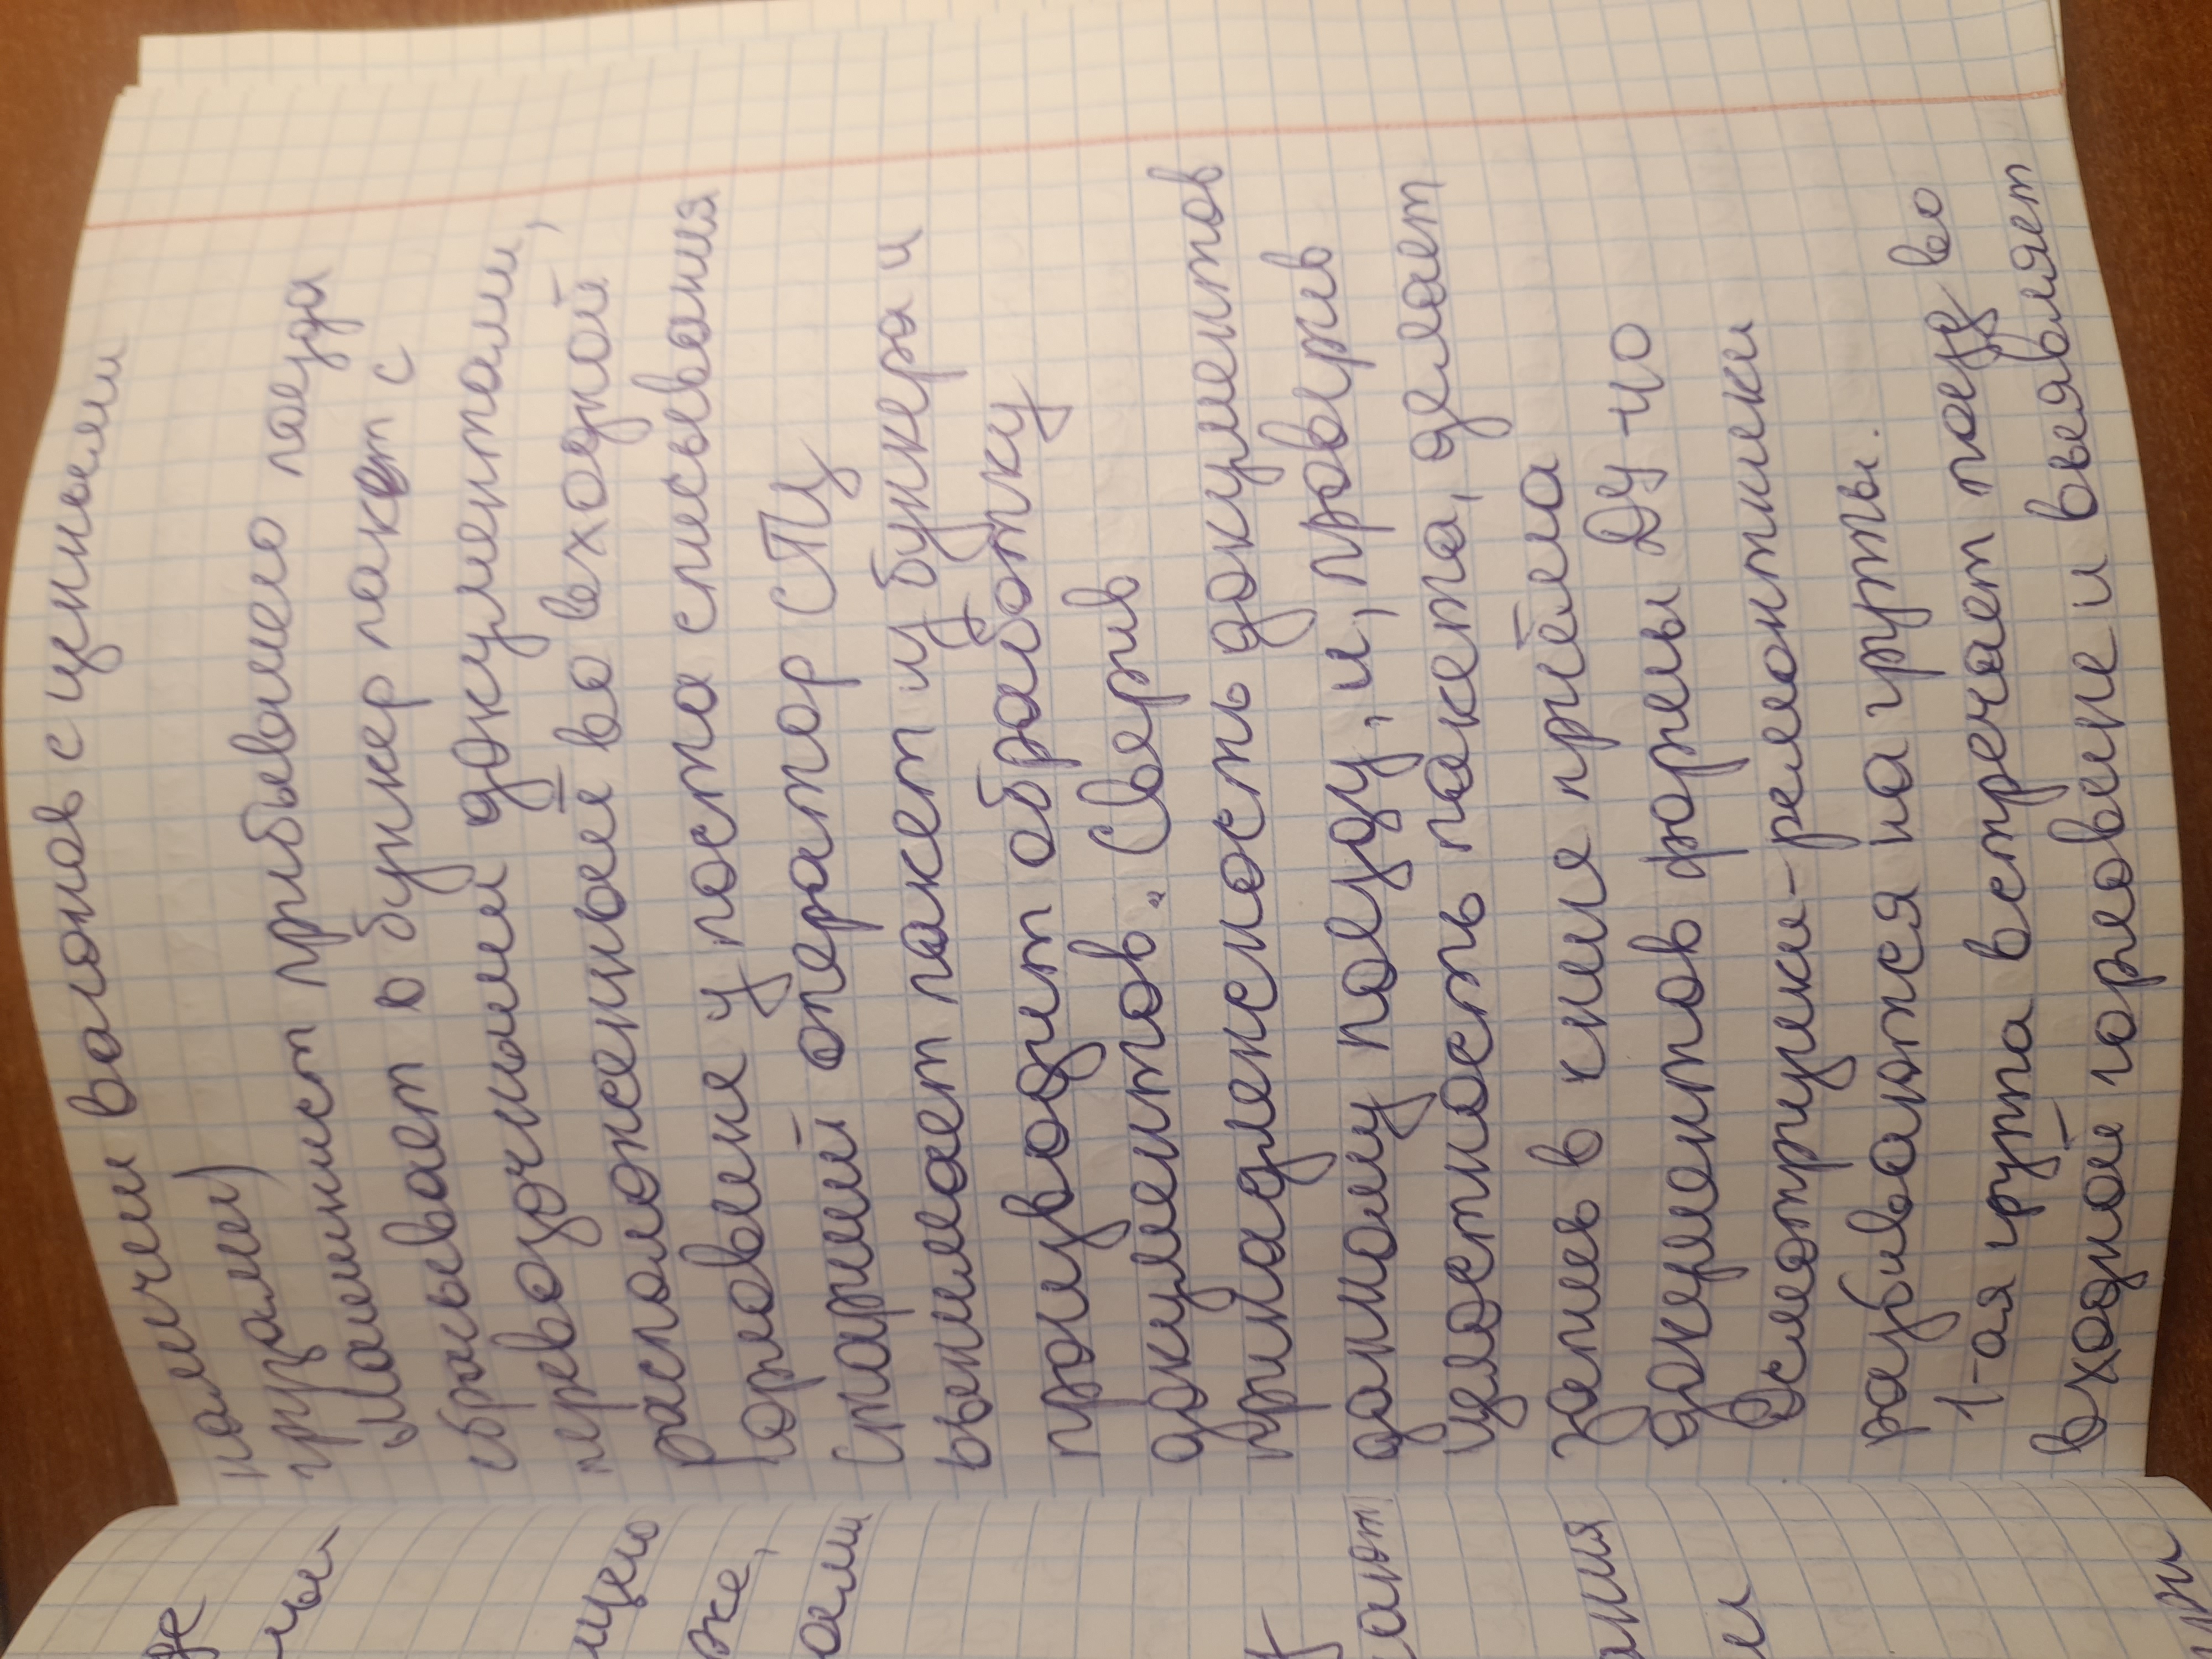 наличии вагонов с ценными
грузами)
Машинист прибывшего поезда
сбрасывает в бункер пакет с
перевозочными документами,
расположенный во входной
горловине у поста списывания
Старший оператор СТЦ
вынимает пакет из бункера и
производит обработку
документов. Сверив
принадлежность документов
данному поезду, и, проверив
целостность пакета, делает
запись в книге приёма
документов формы ДУ-40
Осмотрщики-ремонтники
разбиваются на группы.
1-ая группа встречает поезд во
входной горловине и выявляет
же,
ами